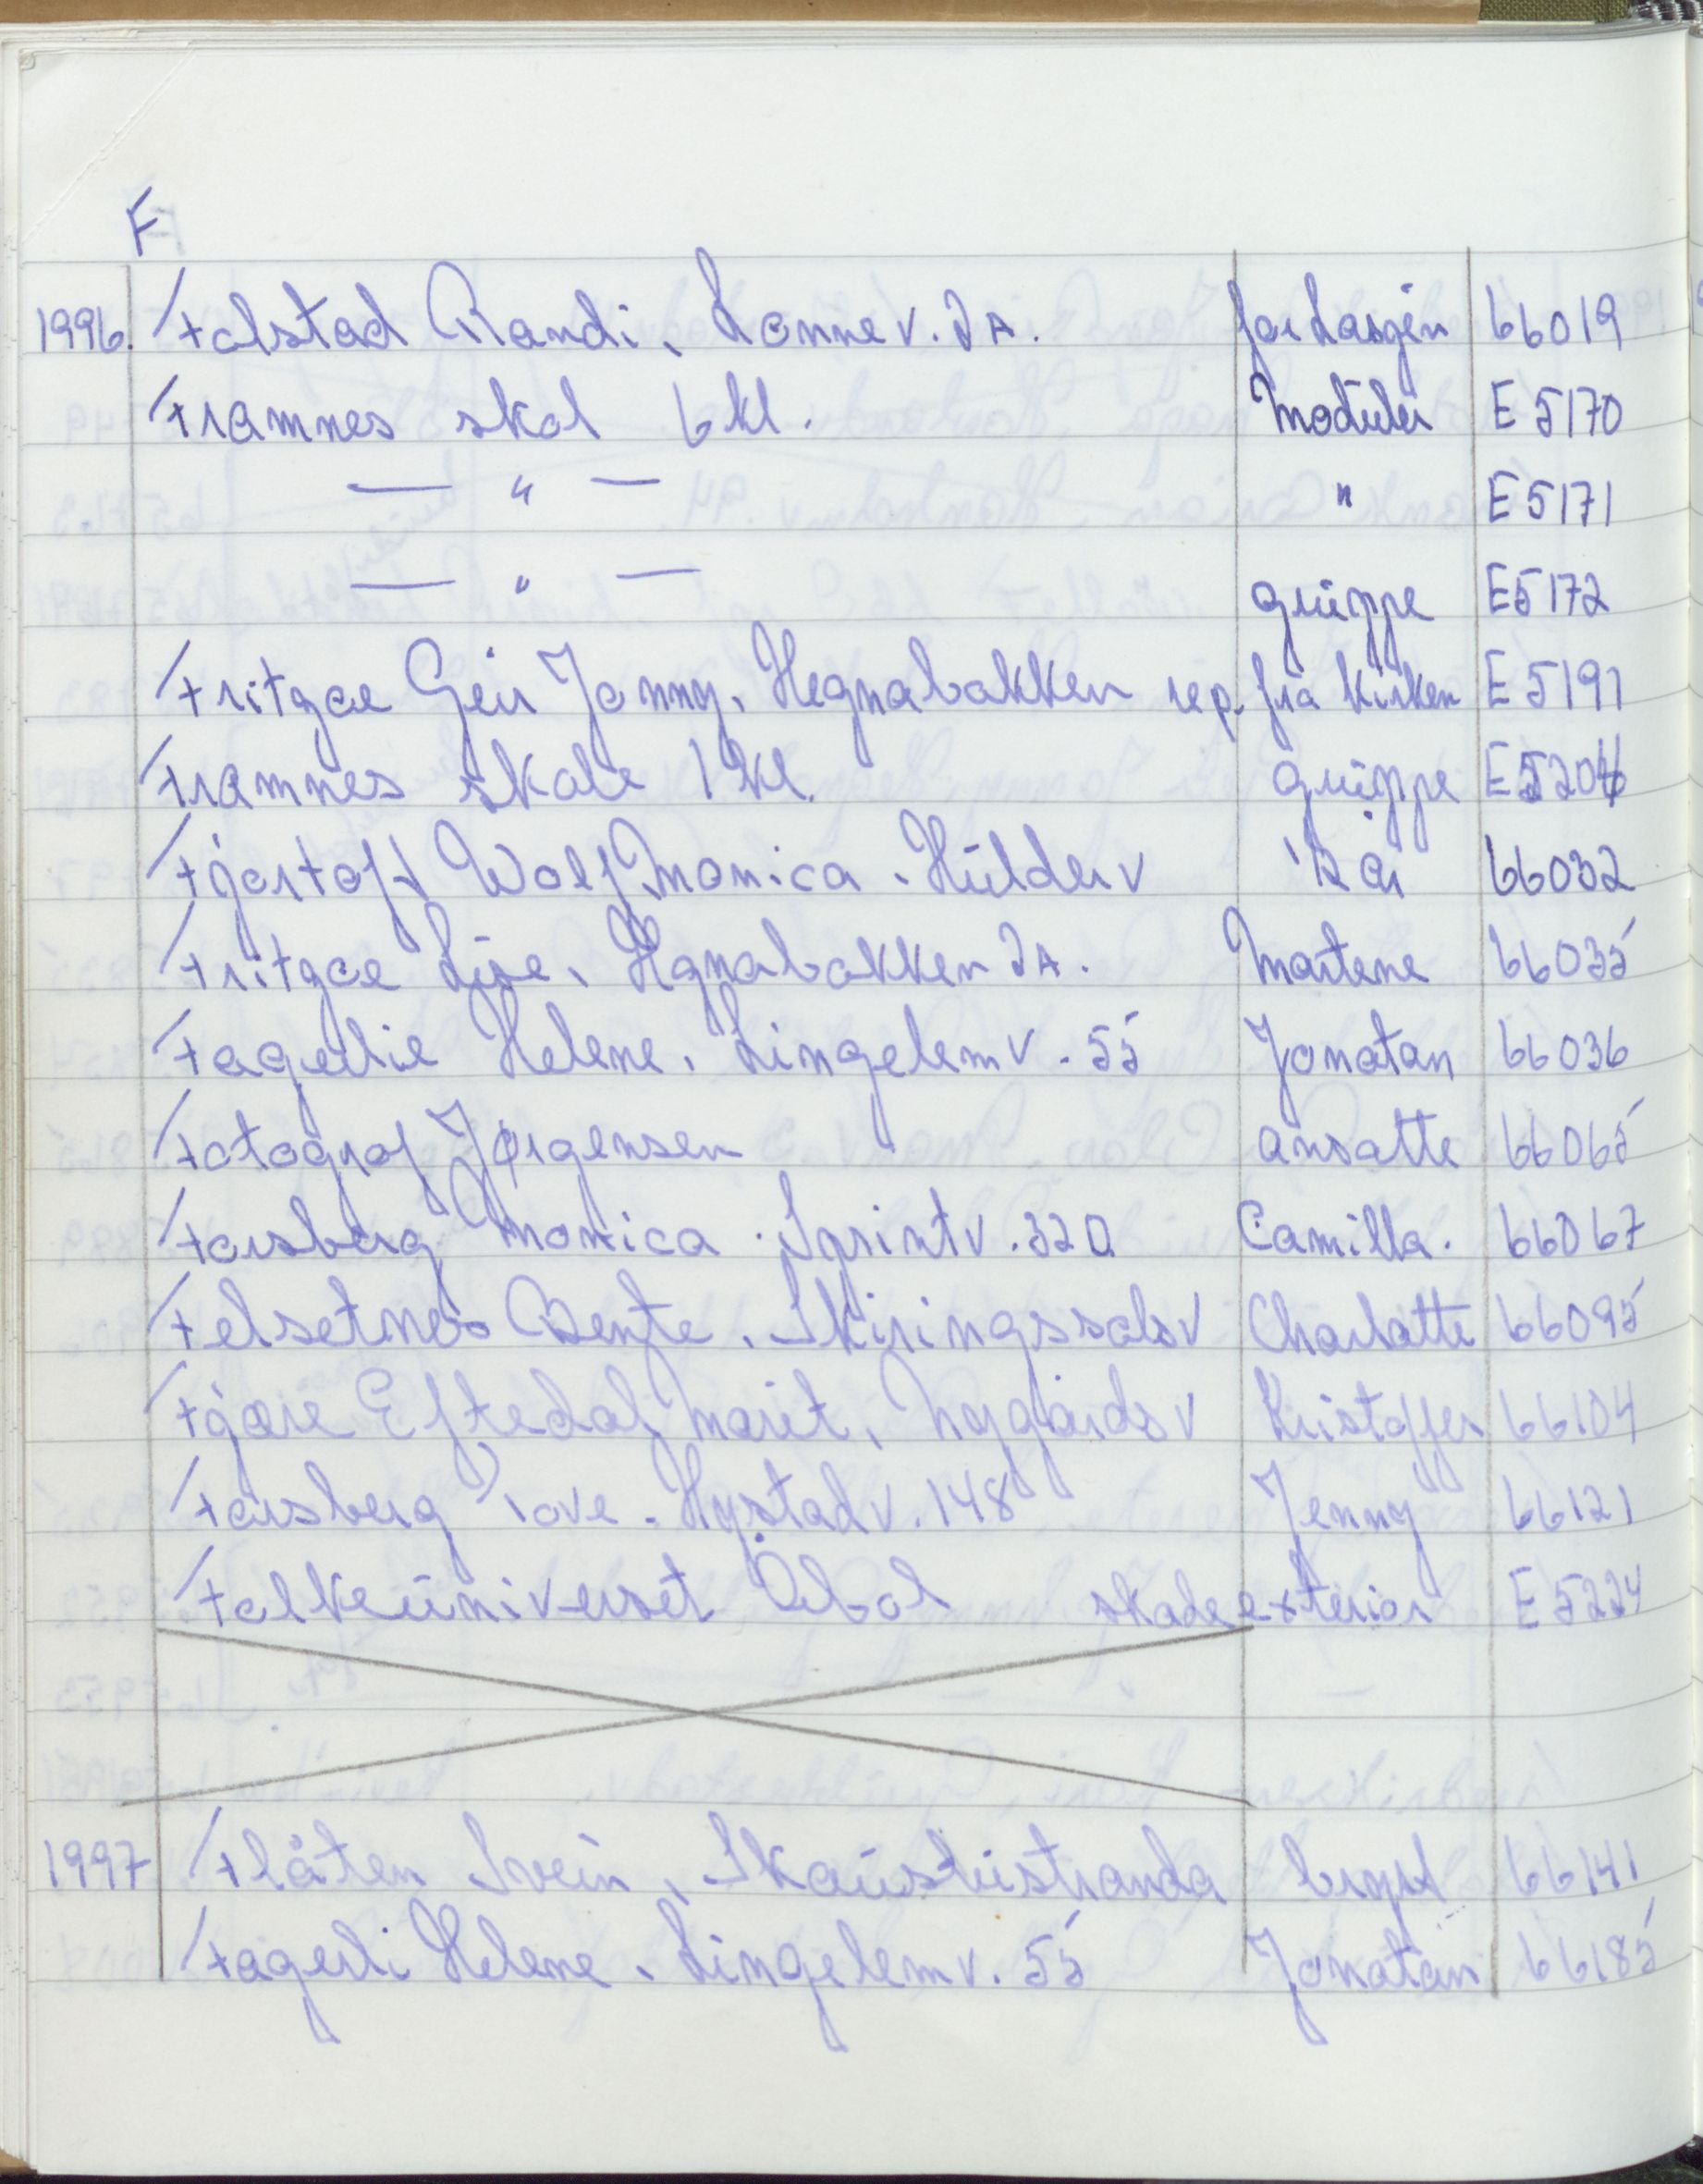 F
1996. Folstad Randi, Lønnev. 2A. for Lasgin 66019
Framnes skol 6 kl. Moduler E 5170
— " — " E 5171
— " — gruppe E5172
Fritzøe Geir Jonny, Hegnabakken rep. fra kirken E 5191
Framnes skole 1 kl. gruppe E5204
Fjørtoft Wolf Monica. Hulderv 12 år 66032
Fritzøe Lise, Hgnabakken 2A. Martene 66035
Fagerlie Helene, Lingelemv. 55 Jonatan 66036
Fotograf Jørgensen ansatte 66065
Forsberg Monica. Sprintv. 32D Camilla. 66067
Felsetnes Bente, Skiringssalsv Charlotte 66095
Fjære Eftedal Marit, Nygårdsv Kristoffer 66104
Forsberg Tove. Hystadv. 148 Jenny 66121
Folkeuniverset Øbol skade exteriør E 5224
1997 Flåten Svein, Skauslustranda brypl 66141
Fagerli Helene. Lingelemv. 55 Jonatan 66185